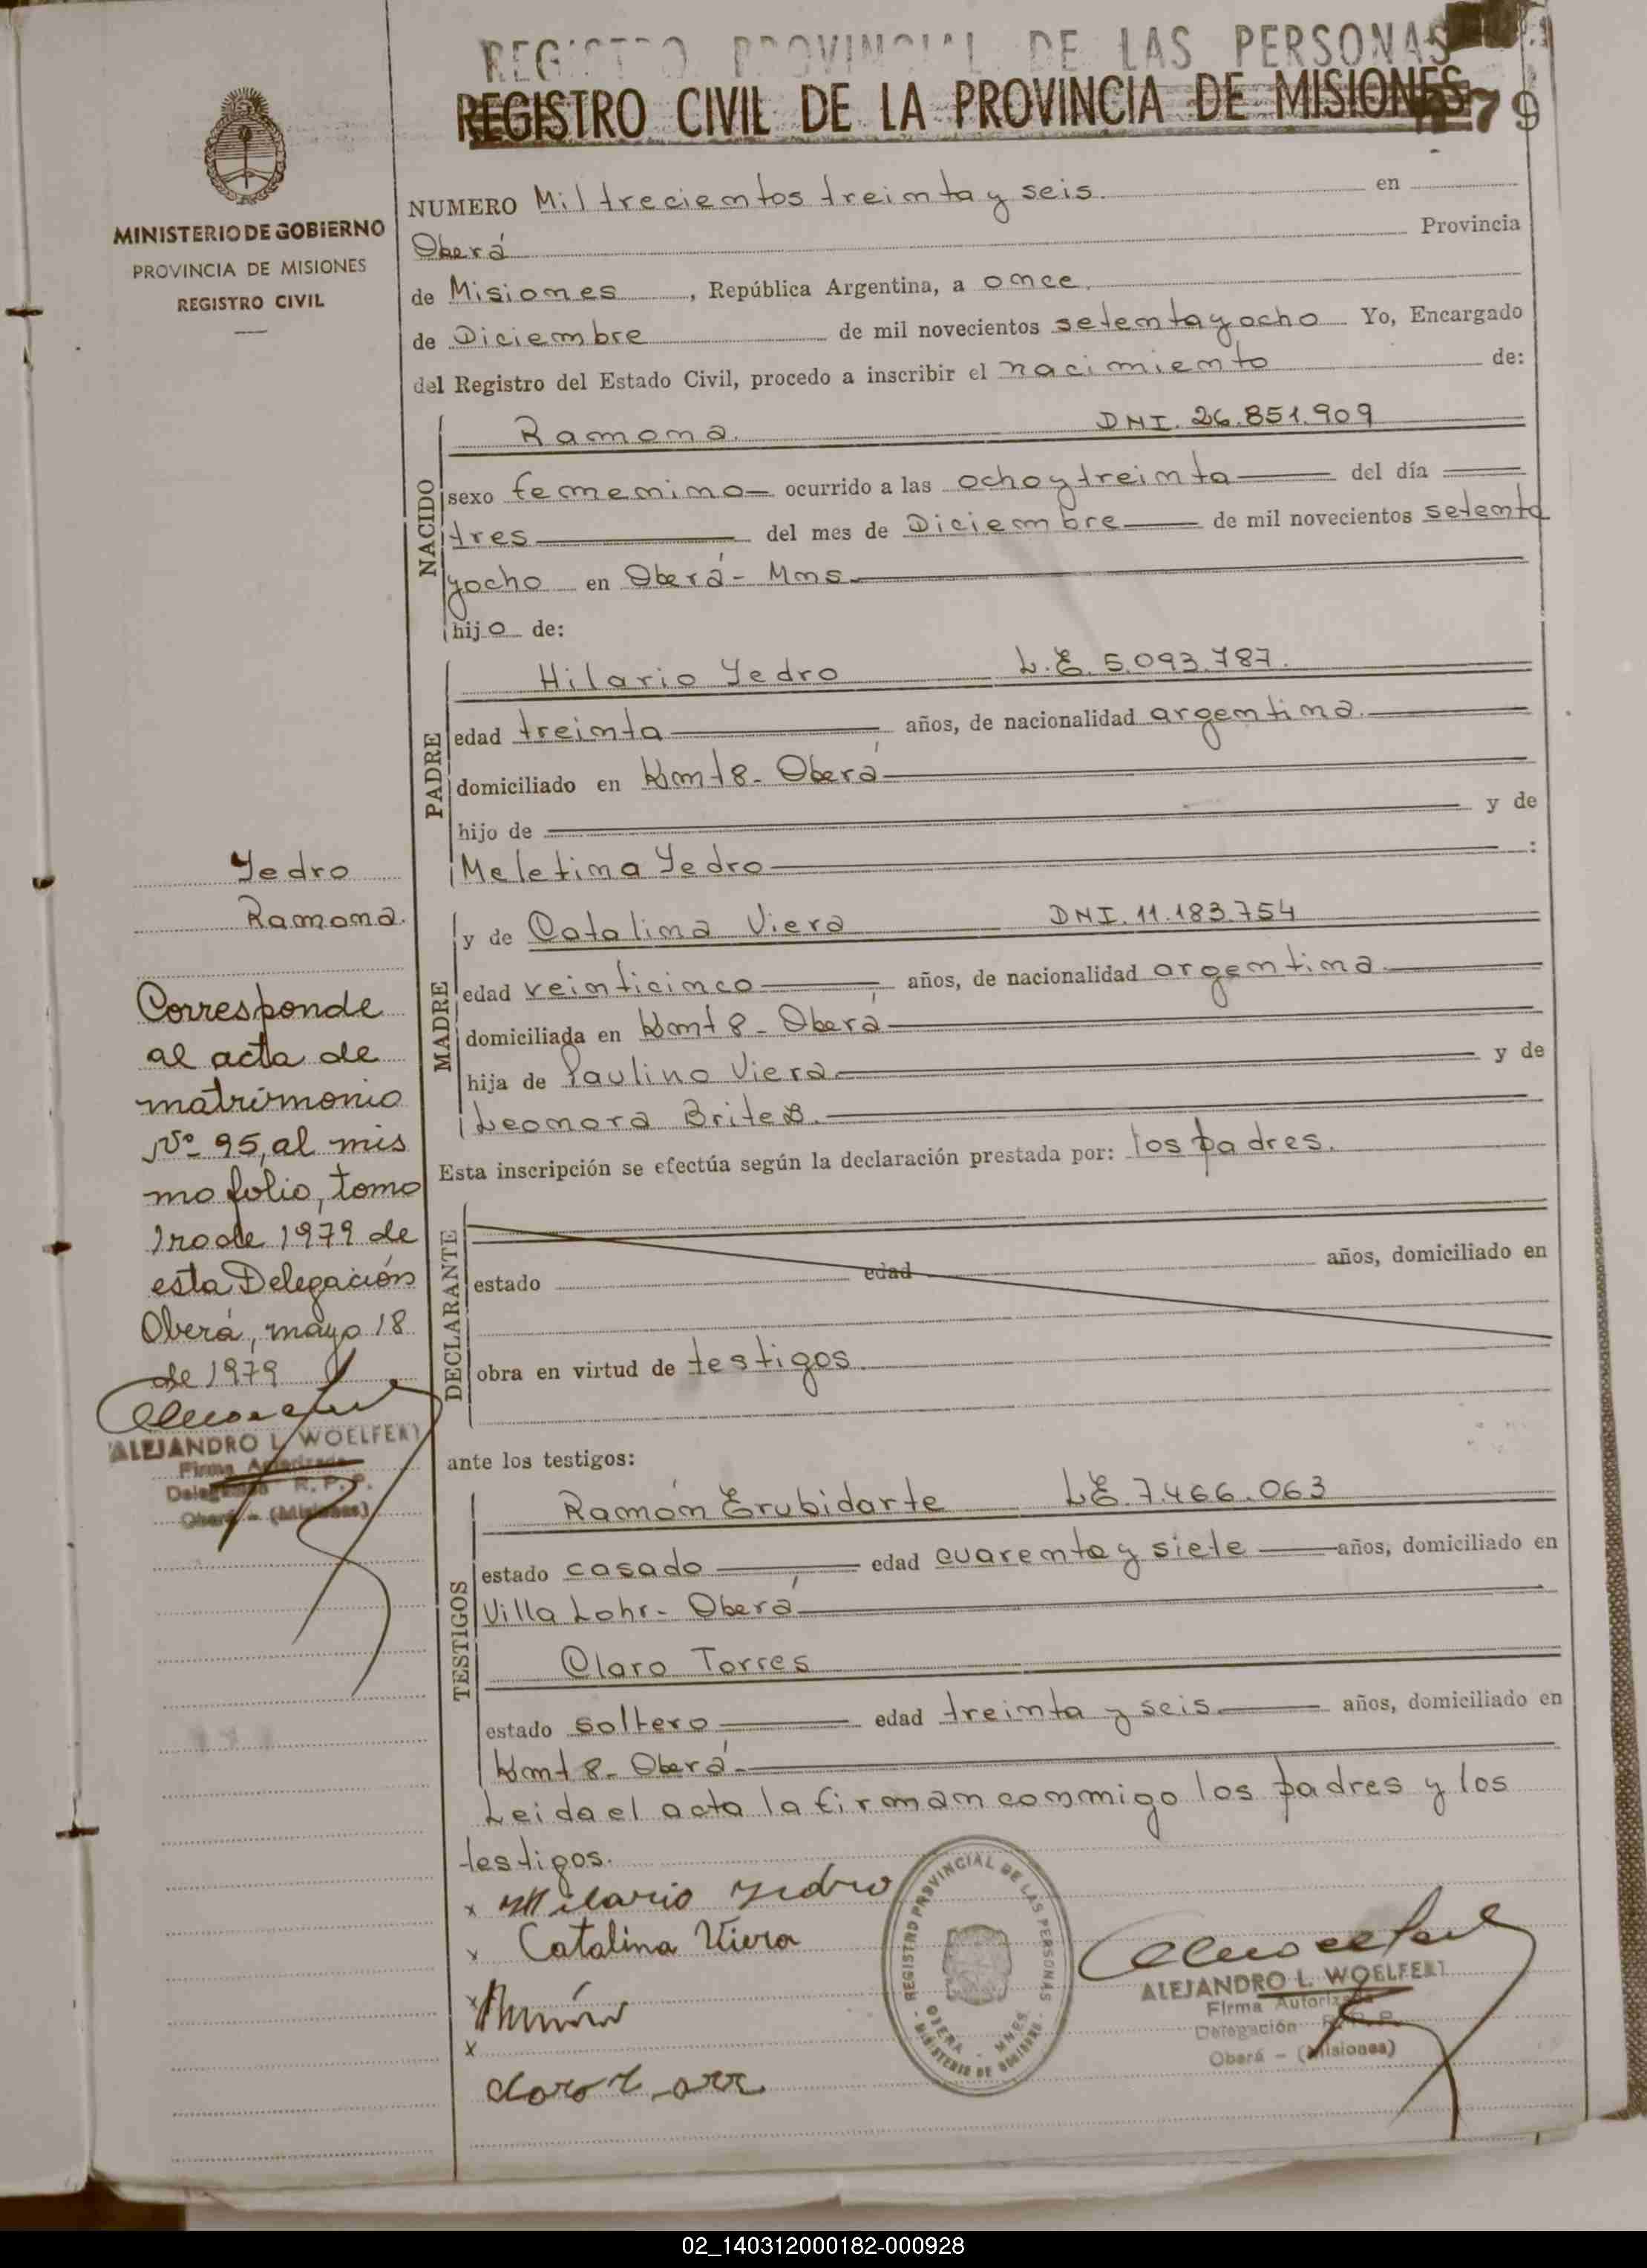 REGISTRO PROVINCIAL DE LAS PERSONAS
REGISTRO CIVIL DE LA PROVINCIA DE MISIONES
79
MINISTERIO DE GOBIERNO
PROVINCIA DE MISIONES
REGISTRO CIVIL
NUMERO Mil trecientos treinta y seis. en
Oberá Provincia
de Misiones, República Argentina, a once
de Diciembre de mil novecientos setenta y ocho Yo, Encargado
del Registro del Estado Civil, procedo a inscribir el nacimiento de:
NACIDO
Ramona. DNI. 26.851.909
sexo femenino ocurrido a las ocho y treinta del día
tres del mes de Diciembre de mil novecientos setenta
y ocho en Oberá - Mnes.
hijo de:
PADRE
Hilario Yedro L.E. 5.093.787.
edad treinta años, de nacionalidad argentina.
domiciliado en Kmt 8 - Oberá
hijo de y de
Meletina Yedro :
Yedro
Ramona.
MADRE
y de Catalina Viera DNI. 11.183.754
edad veinticinco años, de nacionalidad argentina.
domiciliada en Kmt 8 - Oberá
hija de Paulino Viera y de
Leonora Brites.
Corresponde
al acta de
matrimonio
Nº 95, al mis
mo folio, tomo
1ro de 1979 de
esta Delegación
Oberá, mayo 18
de 1979
ALEJANDRO L. WOELFERT
Firma Autorizada
Delegación R. P. P.
Oberá - (Misiones)
Esta inscripción se efectúa según la declaración prestada por: los padres.
DECLARANTE
estado edad años, domiciliado en
obra en virtud de testigos.
ante los testigos:
TESTIGOS
Ramón Erubidarte LE 7.466.063
estado casado edad cuarenta y siete años, domiciliado en
Villa Lohr - Oberá
Claro Torres
estado soltero edad treinta y seis años, domiciliado en
Kmt 8 - Oberá.
Leida el acta la firman conmigo los padres y los
testigos.
x Hilario Yedro
x Catalina Viera
x
x
REGISTRO PROVINCIAL DE LAS PERSONAS
OBERA - MNES.
MINISTERIO DE GOBIERNO
ALEJANDRO L. WOELFERT
Firma Autorizada
Delegación R. P. P.
Oberá - (Misiones)
02_140312000182-000928